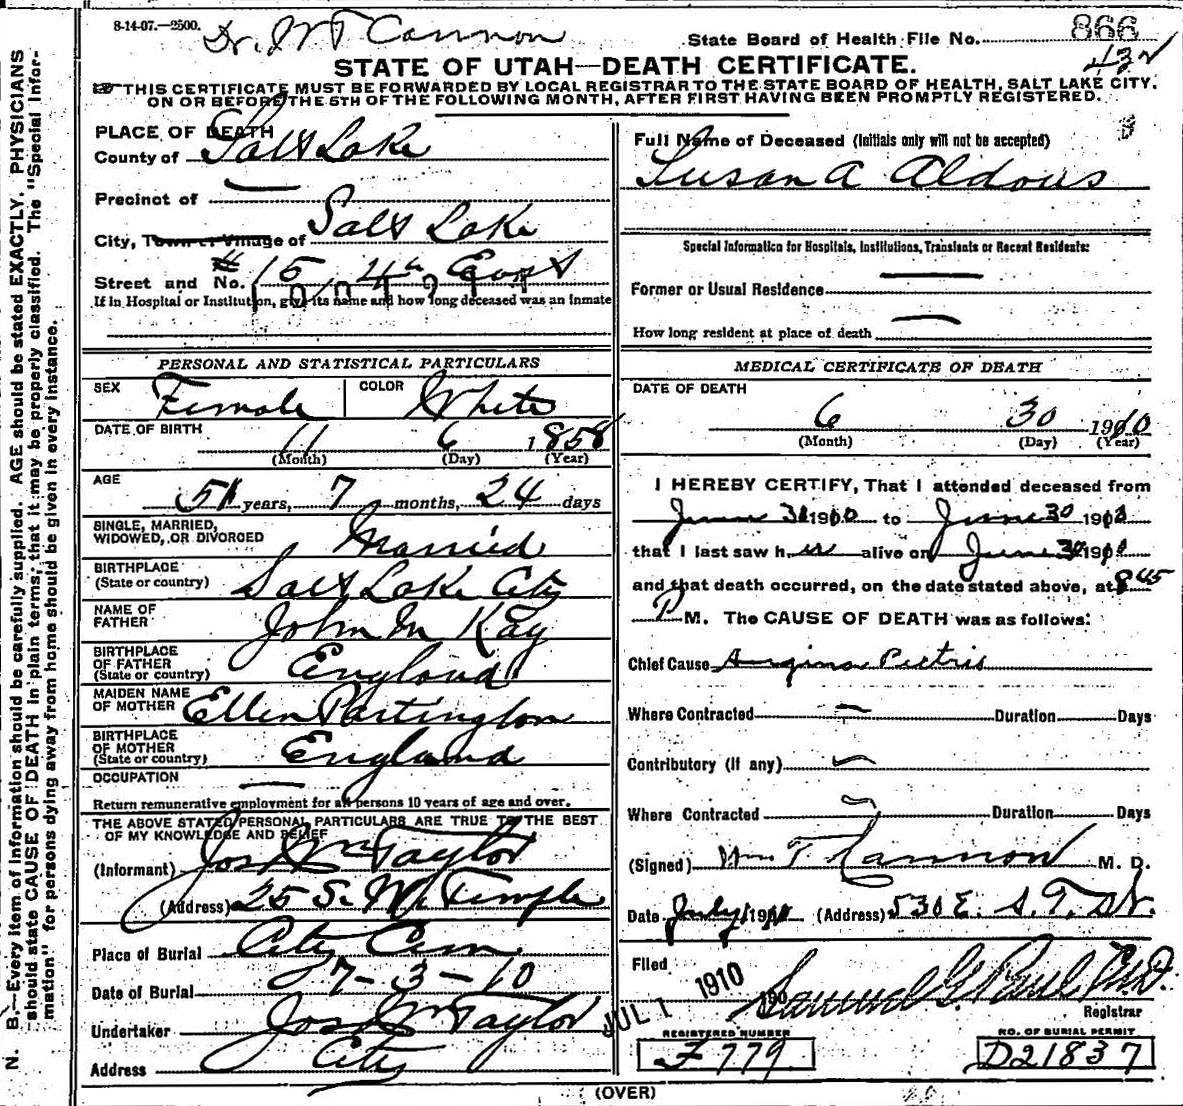 8-14-07.—2500.
Dr. W T Cannon
State Board of Health File No. 866
STATE OF UTAH—DEATH CERTIFICATE.
THIS CERTIFICATE MUST BE FORWARDED BY LOCAL REGISTRAR TO THE STATE BOARD OF HEALTH, SALT LAKE CITY.
ON OR BEFORE THE 5TH OF THE FOLLOWING MONTH, AFTER FIRST HAVING BEEN PROMPTLY REGISTERED.
N. B.—Every item of information should be carefully supplied. AGE should be stated EXACTLY. PHYSICIANS
should state CAUSE OF DEATH in plain terms, that it may be properly classified. The "Special Infor-
mation" for persons dying away from home should be given in every instance.
PLACE OF DEATH
County of Salt Lake
Precinct of —
City, Town or Village of Salt Lake
Street and No. # 15, 4th East
If in Hospital or Institution, give its name and how long deceased was an inmate
PERSONAL AND STATISTICAL PARTICULARS
SEX Female COLOR White
DATE OF BIRTH 11 6 1858
(Month) (Day) (Year)
AGE 51 years, 7 months, 24 days
SINGLE, MARRIED,
WIDOWED, OR DIVORCED Married
BIRTHPLACE
(State or country) Salt Lake City
NAME OF
FATHER John M Kay
BIRTHPLACE
OF FATHER
(State or country) England
MAIDEN NAME
OF MOTHER Ellen Partington
BIRTHPLACE
OF MOTHER
(State or country) England
OCCUPATION —
Return remunerative employment for all persons 10 years of age and over.
THE ABOVE STATED PERSONAL PARTICULARS ARE TRUE TO THE BEST
OF MY KNOWLEDGE AND BELIEF
(Informant) Jos Wm Taylor
(Address) 25 S. W. Temple
Place of Burial City Cem.
Date of Burial 7-3-10
Undertaker Jos Wm Taylor
Address City
Full Name of Deceased (Initials only will not be accepted)
Susan A Aldous
Special Information for Hospitals, Institutions, Transients or Recent Residents:
Former or Usual Residence —
How long resident at place of death —
MEDICAL CERTIFICATE OF DEATH
DATE OF DEATH
6 30 1910
(Month) (Day) (Year)
I HEREBY CERTIFY, That I attended deceased from
June 30 1910 to June 30 1910
that I last saw her alive on June 30 1910
and that death occurred, on the date stated above, at 8 45
P M. The CAUSE OF DEATH was as follows:
Chief Cause Angina Pectris
Where Contracted — Duration Days
Contributory (if any) —
Where Contracted Duration Days
(Signed) Wm T Cannon M. D.
Date July 1 1910 (Address) 530 E. S. T. St.
Filed JUL 1 1910 190 Samuel G Paul M.D.
Registrar
REGISTERED NUMBER NO. OF BURIAL PERMIT
F 779 D21837
(OVER)